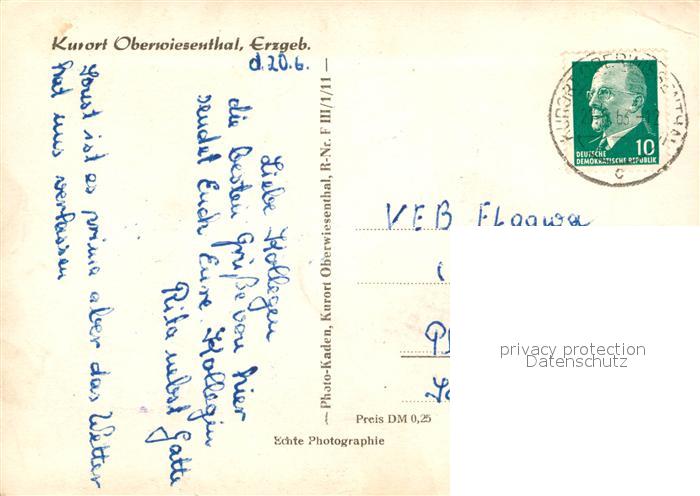 Kurort Oberwiesenthal, Erzgeb.
d. 20.6.
Liebe Kollegen
die besten Grüße von hier
sendet Euch Eure Kollegin
Rita nebst Gatte
Sonst ist es prima aber das Wetter
hat uns verlassen
— Photo-Kaden, Kurort Oberwiesenthal, R-Nr. F III/1/11 —
KURORT OBERWIESENTHAL
c
10
DEUTSCHE
DEMOKRATISCHE REPUBLIK
VEB
privacy protection
Datenschutz
Preis DM 0,25
Echte Photographie